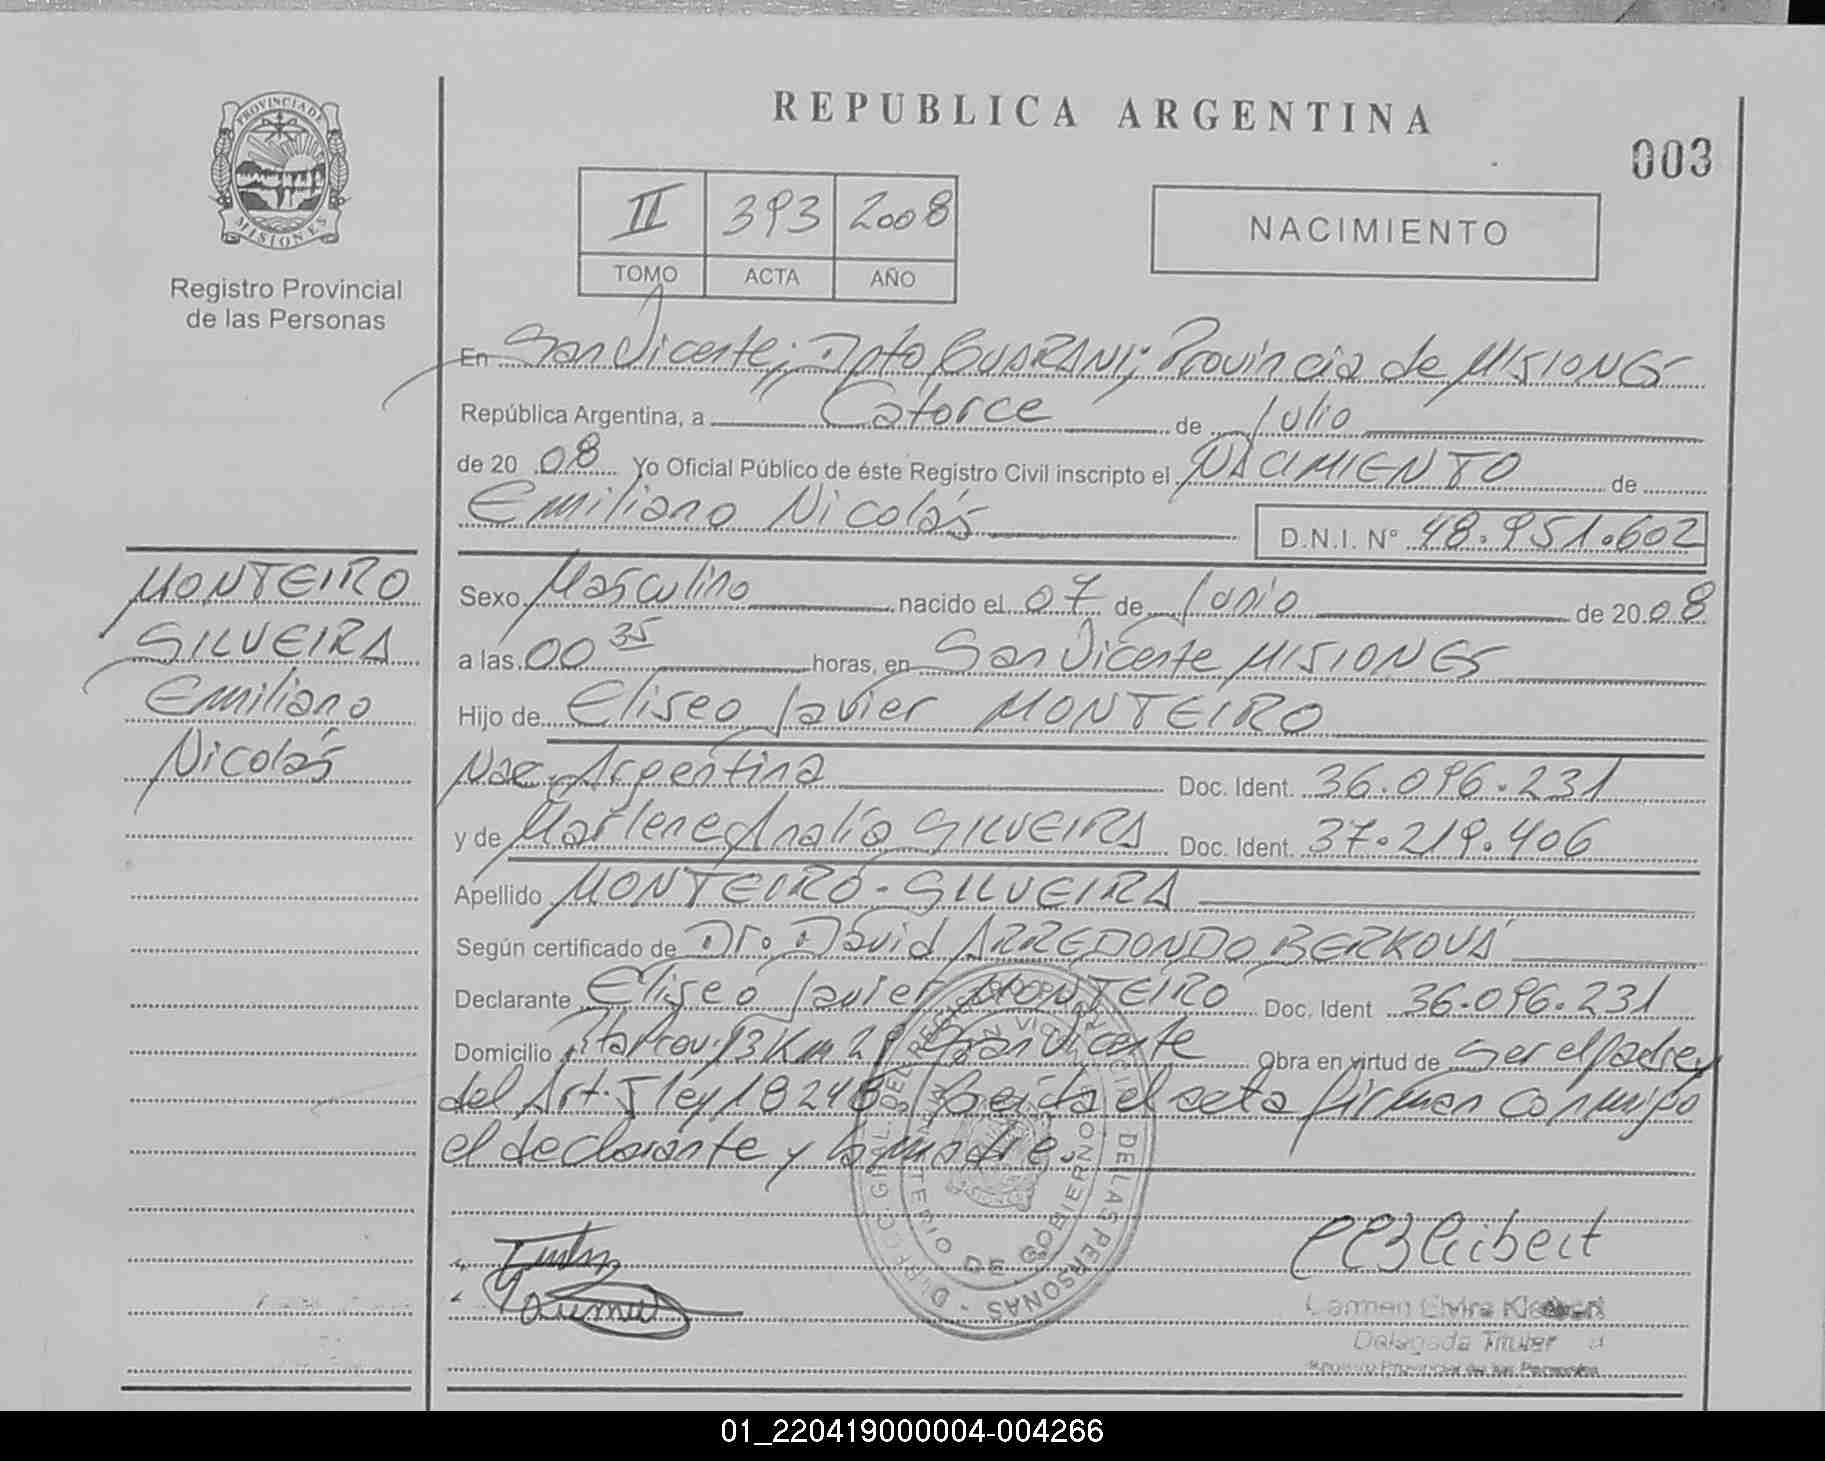 REPUBLICA ARGENTINA
003
PROVINCIA DE
MISIONES
Registro Provincial
de las Personas
II 393 2008
TOMO ACTA AÑO
NACIMIENTO
En San Vicente; Dpto GUARANI; Provincia de MISIONES
República Argentina, a Catorce de Julio
de 2008 Yo Oficial Público de éste Registro Civil inscripto el NACIMIENTO de
Emiliano Nicolás D.N.I. Nº 48.951.602
MONTEIRO
SILVEIRA
Emiliano
Nicolás
Sexo Masculino nacido el 07 de Junio de 2008
a las 00 35 horas, en San Vicente MISIONES
Hijo de Eliseo Javier MONTEIRO
Nac. Argentina Doc. Ident. 36.096.231
y de Marlene Analía SILVEIRA Doc. Ident. 37.219.406
Apellido MONTEIRO-SILVEIRA
Según certificado de Dr. David ARREDONDO BERKOVÁ
Declarante Eliseo Javier MONTEIRO Doc. Ident 36.096.231
Domicilio Km San Vicente Obra en virtud de ser el padre y
del Art. 5 ley 18248 Leída el acta firman conmigo
el declarante y la madre.
DE LAS PERSONAS
DE GOBIERNO
Carmen Elvira
Delegada Titular
Registro Provincial de las Personas
01_220419000004-004266